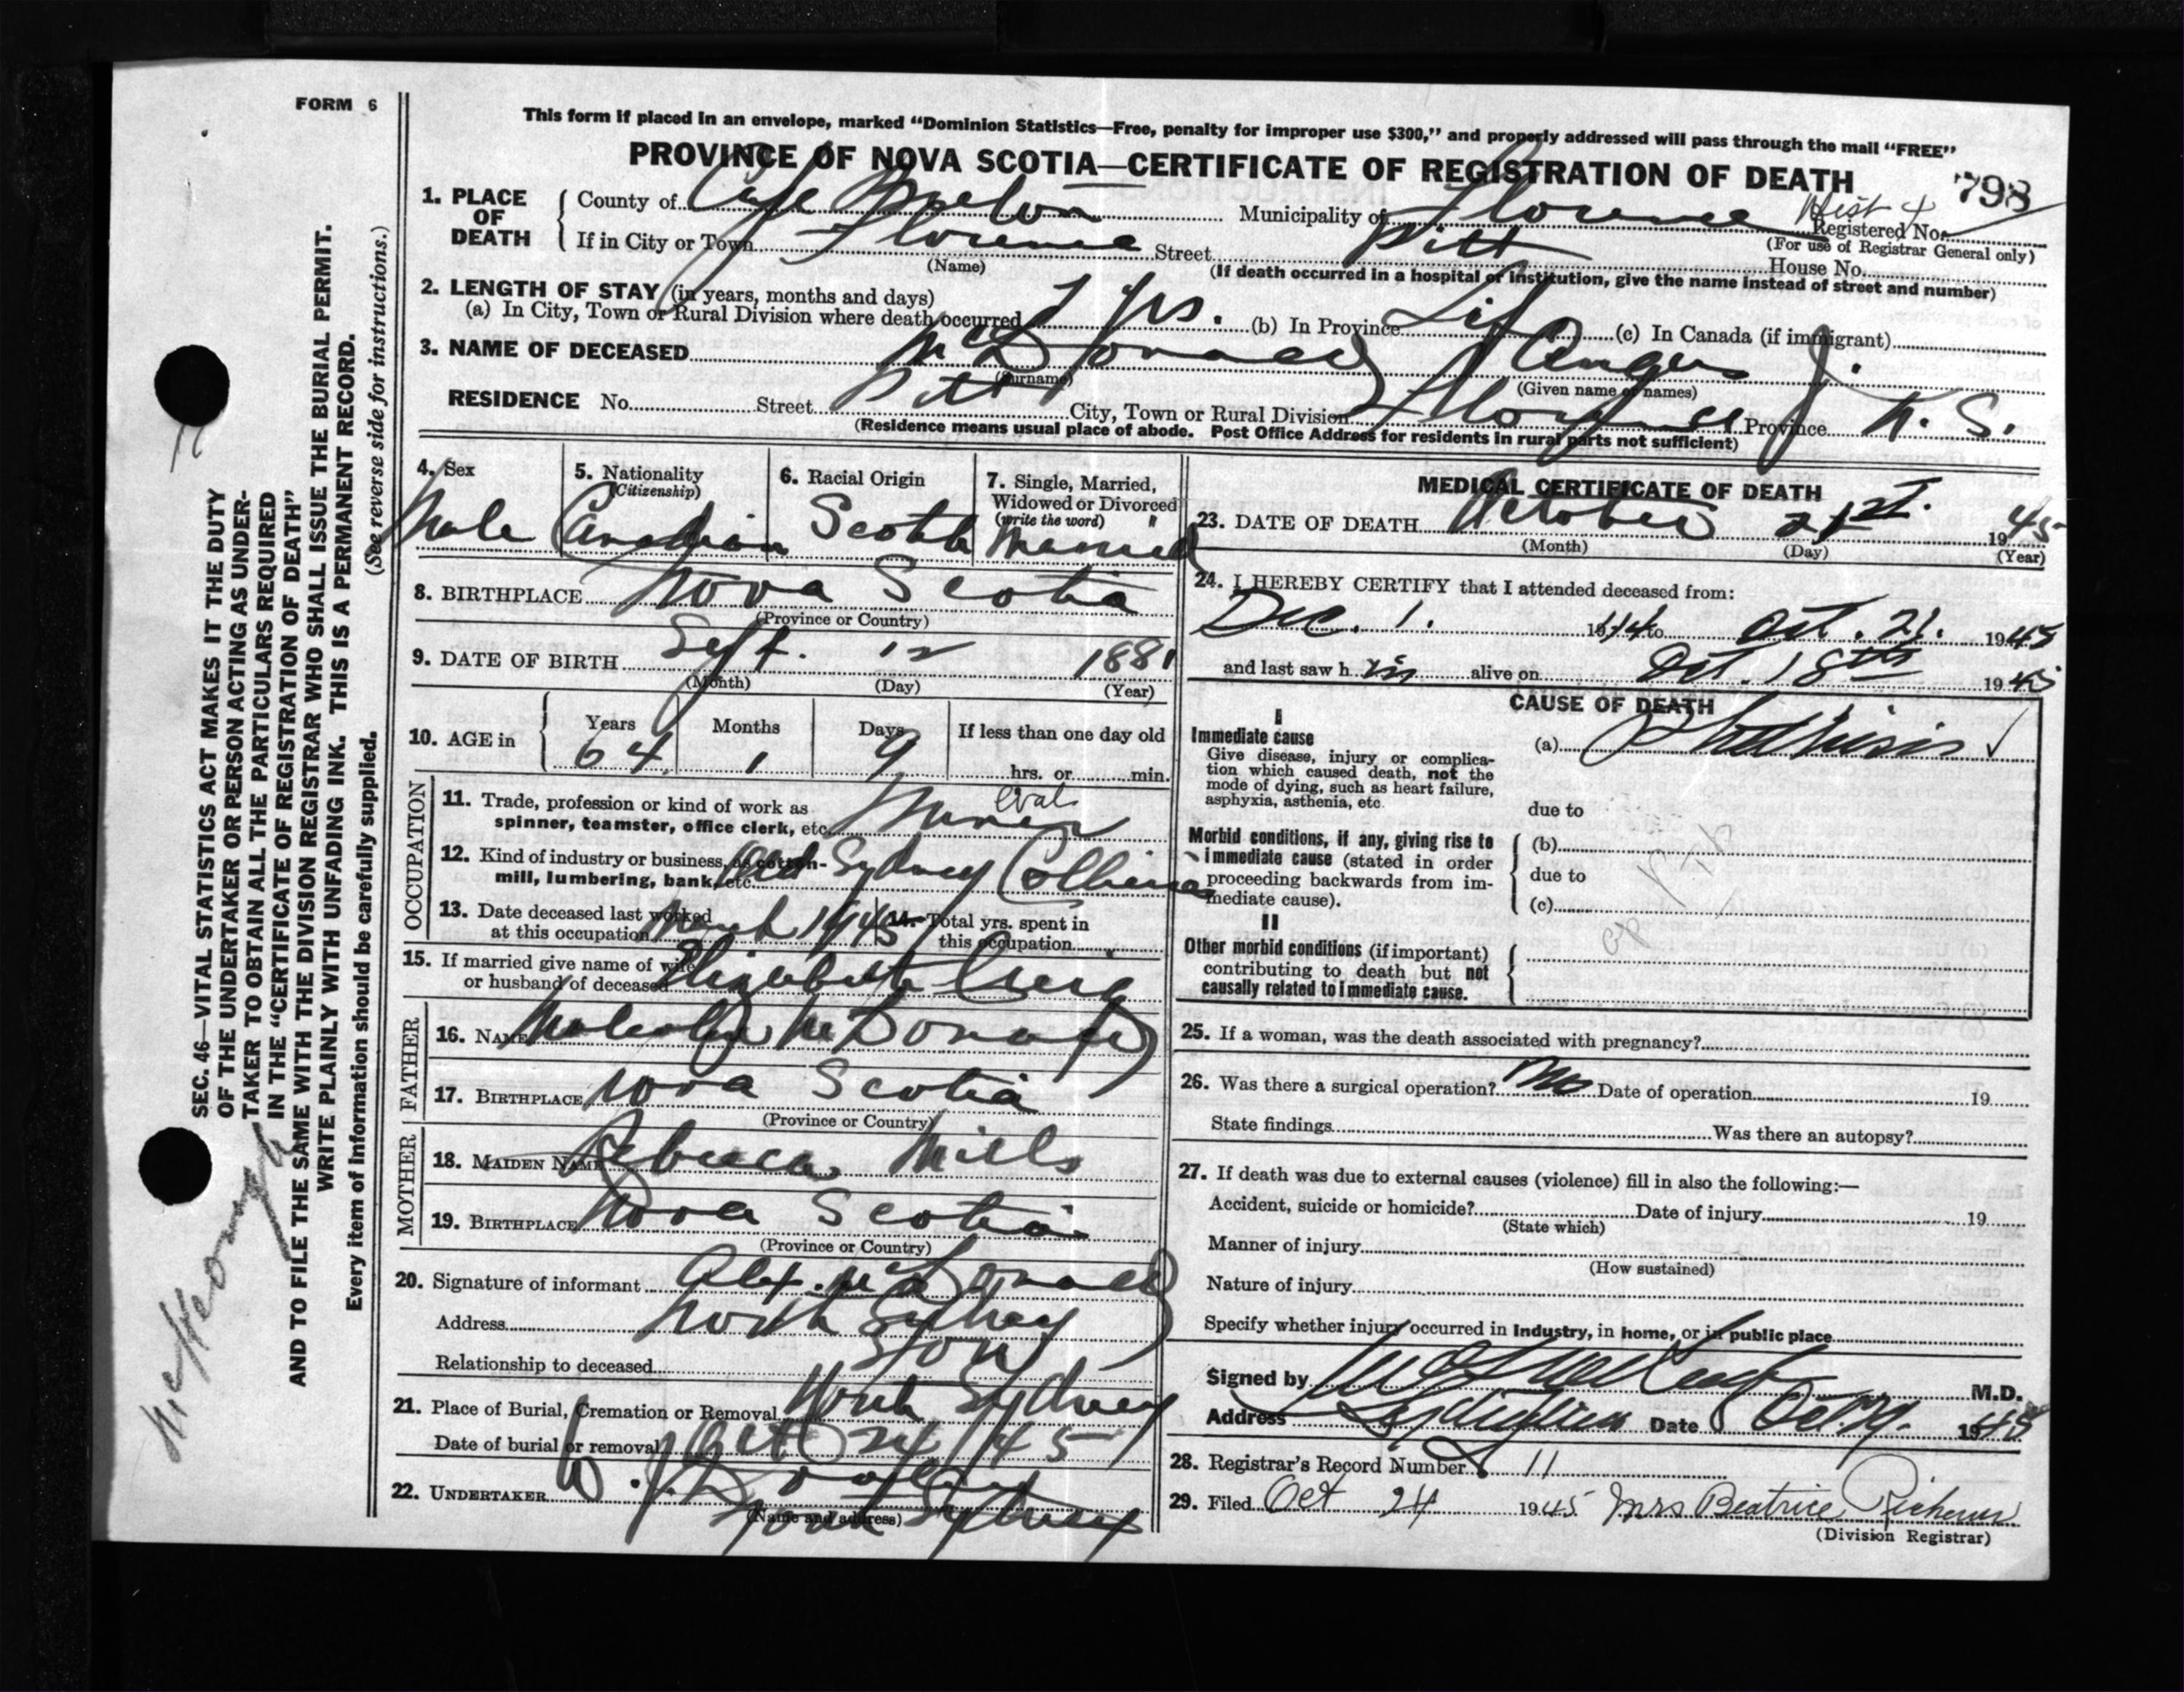 FORM 6
This form if placed in an envelope, marked "Dominion Statistics—Free, penalty for improper use $300," and properly addressed will pass through the mail "FREE"
PROVINCE OF NOVA SCOTIA—CERTIFICATE OF REGISTRATION OF DEATH
798
1. PLACE OF DEATH
County of Cape Breton Municipality of Florence Registered No.
(For use of Registrar General only)
If in City or Town Florence Street Pitt House No.
(Name) (If death occurred in a hospital or institution, give the name instead of street and number)
2. LENGTH OF STAY (in years, months and days)
(a) In City, Town or Rural Division where death occurred yrs. (b) In Province Life (c) In Canada (if immigrant)
3. NAME OF DECEASED McDonald Angus J.
(Surname) (Given name or names)
RESIDENCE No. Street Pitt City, Town or Rural Division Florence Province N. S.
(Residence means usual place of abode. Post Office Address for residents in rural parts not sufficient)
4. Sex
Male
5. Nationality
(Citizenship)
Canadian
6. Racial Origin
Scotch
7. Single, Married,
Widowed or Divorced
(write the word)
Married
8. BIRTHPLACE Nova Scotia
(Province or Country)
9. DATE OF BIRTH Sept. 12 1881
(Month) (Day) (Year)
10. AGE in
Years Months Days If less than one day old
64 1 9 hrs. or min.
OCCUPATION
11. Trade, profession or kind of work as
spinner, teamster, office clerk, etc. Miner
12. Kind of industry or business, as cotton-
mill, lumbering, bank, etc. Old Sydney Collieries
13. Date deceased last worked
at this occupation March 1945
14. Total yrs. spent in
this occupation
15. If married give name of wife
or husband of deceased Elizabeth
FATHER
16. NAME Malcolm McDonald
17. BIRTHPLACE Nova Scotia
(Province or Country)
MOTHER
18. MAIDEN NAME Rebecca Mills
19. BIRTHPLACE Nova Scotia
(Province or Country)
20. Signature of informant Alex. McDonald
Address North Sydney
Relationship to deceased Son
21. Place of Burial, Cremation or Removal North Sydney
Date of burial or removal Oct 24/45
22. UNDERTAKER W. J. Dooley
(Name and address) North Sydney
MEDICAL CERTIFICATE OF DEATH
23. DATE OF DEATH October 21st. 1945
(Month) (Day) (Year)
24. I HEREBY CERTIFY that I attended deceased from:
Dec. 1. 1944 to Oct. 21. 1945
and last saw him alive on Oct. 18th 1945
CAUSE OF DEATH
I
Immediate cause
Give disease, injury or complica-
tion which caused death, not the
mode of dying, such as heart failure,
asphyxia, asthenia, etc.
(a) Phthisis ✓
due to
Morbid conditions, if any, giving rise to
immediate cause (stated in order
proceeding backwards from im-
mediate cause).
(b)
due to
(c)
II
Other morbid conditions (if important)
contributing to death but not
causally related to immediate cause.
25. If a woman, was the death associated with pregnancy?
26. Was there a surgical operation? No Date of operation 19
State findings Was there an autopsy?
27. If death was due to external causes (violence) fill in also the following:—
Accident, suicide or homicide? Date of injury 19
(State which)
Manner of injury
(How sustained)
Nature of injury
Specify whether injury occurred in industry, in home, or in public place
Signed by M.D.
Address Date Oct. 1945
28. Registrar's Record Number 11
29. Filed Oct 24 1945 Mrs Beatrice
(Division Registrar)
SEC. 46—VITAL STATISTICS ACT MAKES IT THE DUTY
OF THE UNDERTAKER OR PERSON ACTING AS UNDER-
TAKER TO OBTAIN ALL THE PARTICULARS REQUIRED
IN THE "CERTIFICATE OF REGISTRATION OF DEATH"
AND TO FILE THE SAME WITH THE DIVISION REGISTRAR WHO SHALL ISSUE THE BURIAL PERMIT.
WRITE PLAINLY WITH UNFADING INK. THIS IS A PERMANENT RECORD.
Every item of information should be carefully supplied. (See reverse side for instructions.)